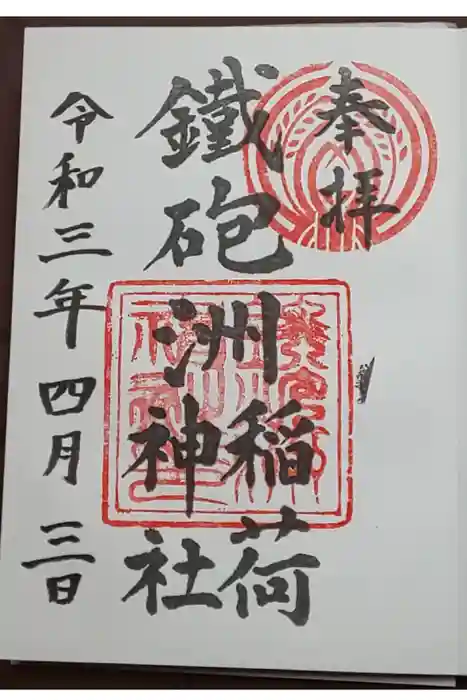 奉拝
鐵砲洲稲荷
神社
令和三年四月三日